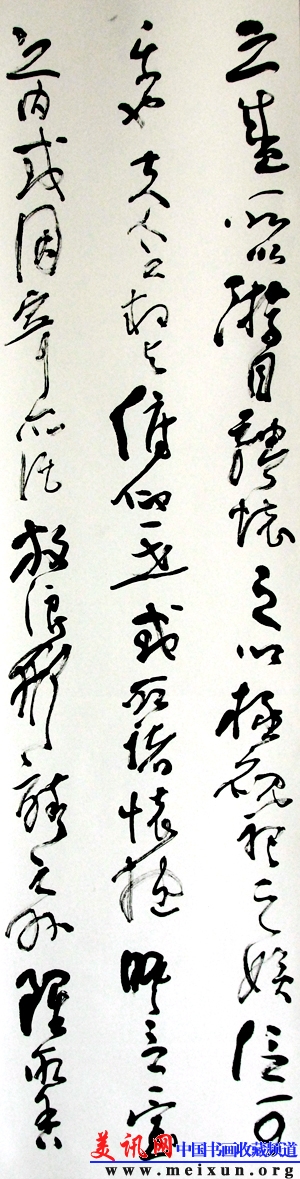 之盛所以游目騁懷足以極視聽之娛信可
樂也夫人之相與俯仰一世或取諸懷抱晤言一室
之内或因寄所託放浪形骸之外雖取舍
美讯网 中国书画收藏频道
www.meixun.org